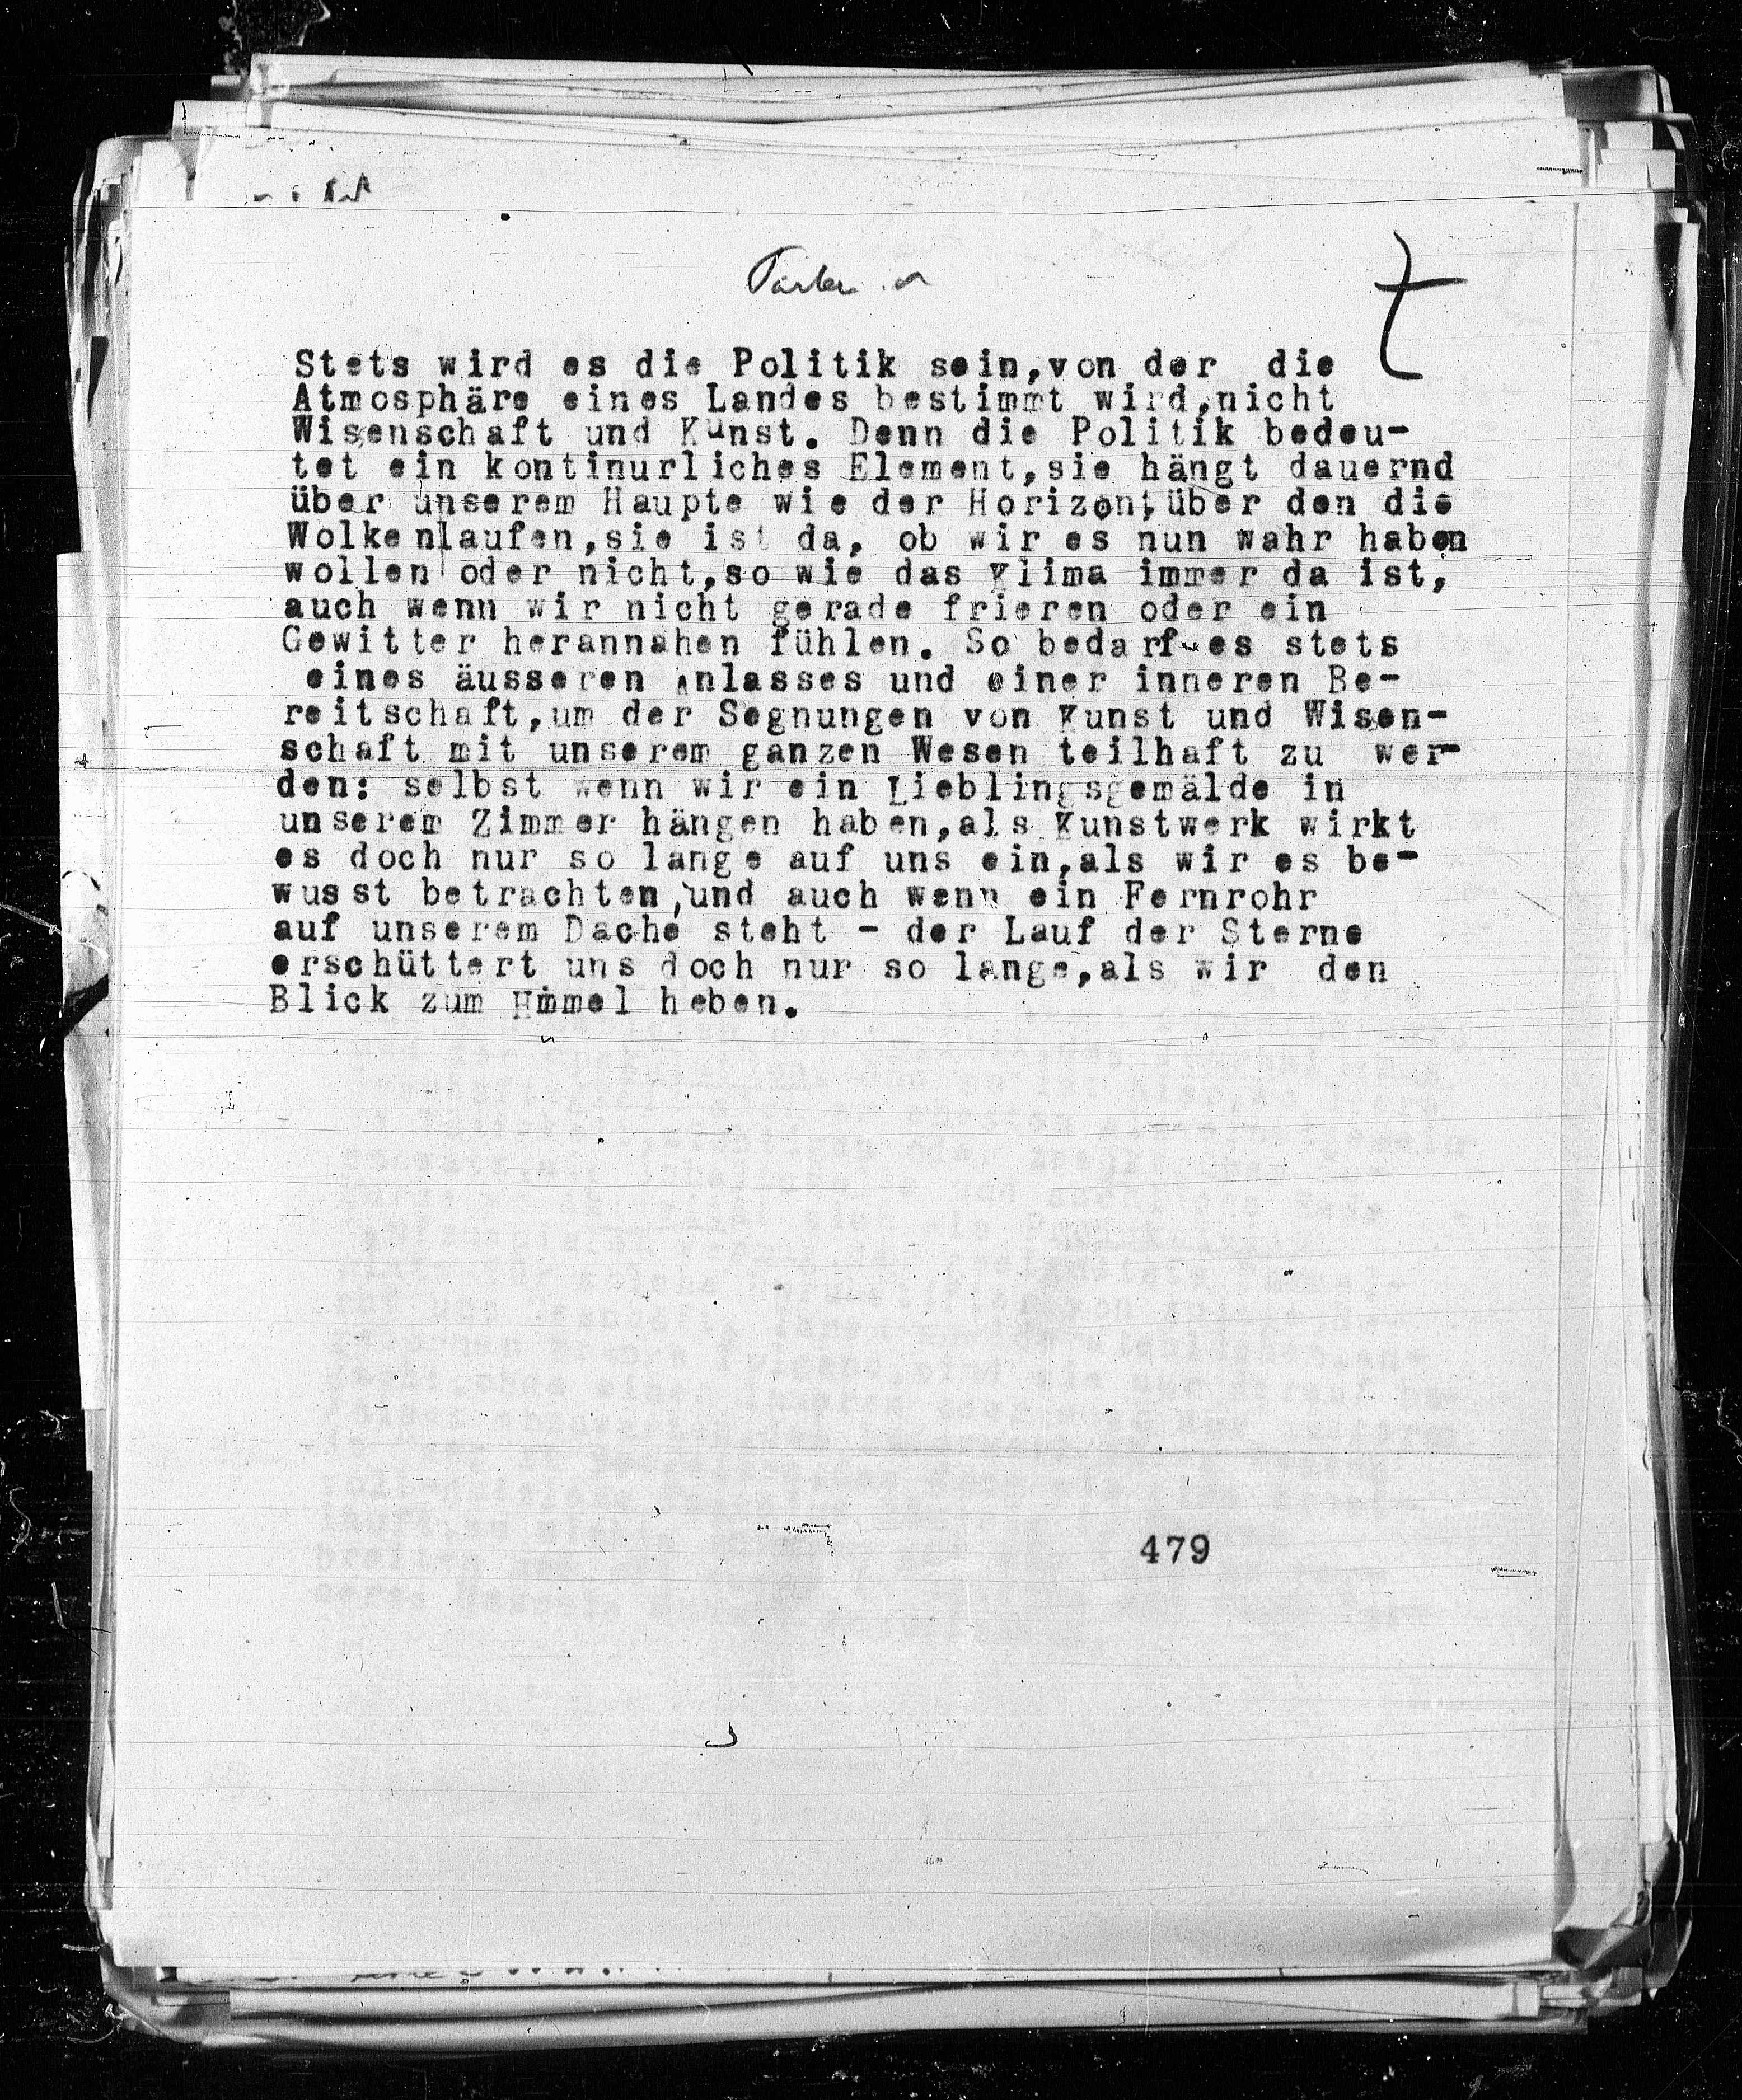 Stets wird es die Politik sein,von der die
Atmosphäre eines Landes bestimmt wird,nicht
Wisenschaft und Kunst. Denn die Politik bedeu-
tet ein kontinurliches Element,sie hängt dauernd
über unserem Haupte wie der Horizont,über den die
Wolkenlaufen,sie ist da, ob wir es nun wahr haben
wollen oder nicht,so wie das Klima immer da ist,
auch wenn wir nicht gerade frieren oder ein
Gewitter herannahen fühlen. So bedarf es stets
eines äusseren Anlasses und einer inneren Be-
reitschaft,um der Segnungen von Kunst und Wisen-
schaft mit unserem ganzen Wesen teilhaft zu wer-
den: selbst wenn wir ein Lieblingsgemälde in
unserem Zimmer hängen haben,als Kunstwerk wirkt
es doch nur so lange auf uns ein,als wir es be-
wusst betrachten,und auch wenn ein Fernrohr
auf unserem Dache steht - der Lauf der Sterne
erschüttert uns doch nur so lange,als wir den
Blick zum Himmel heben.
479